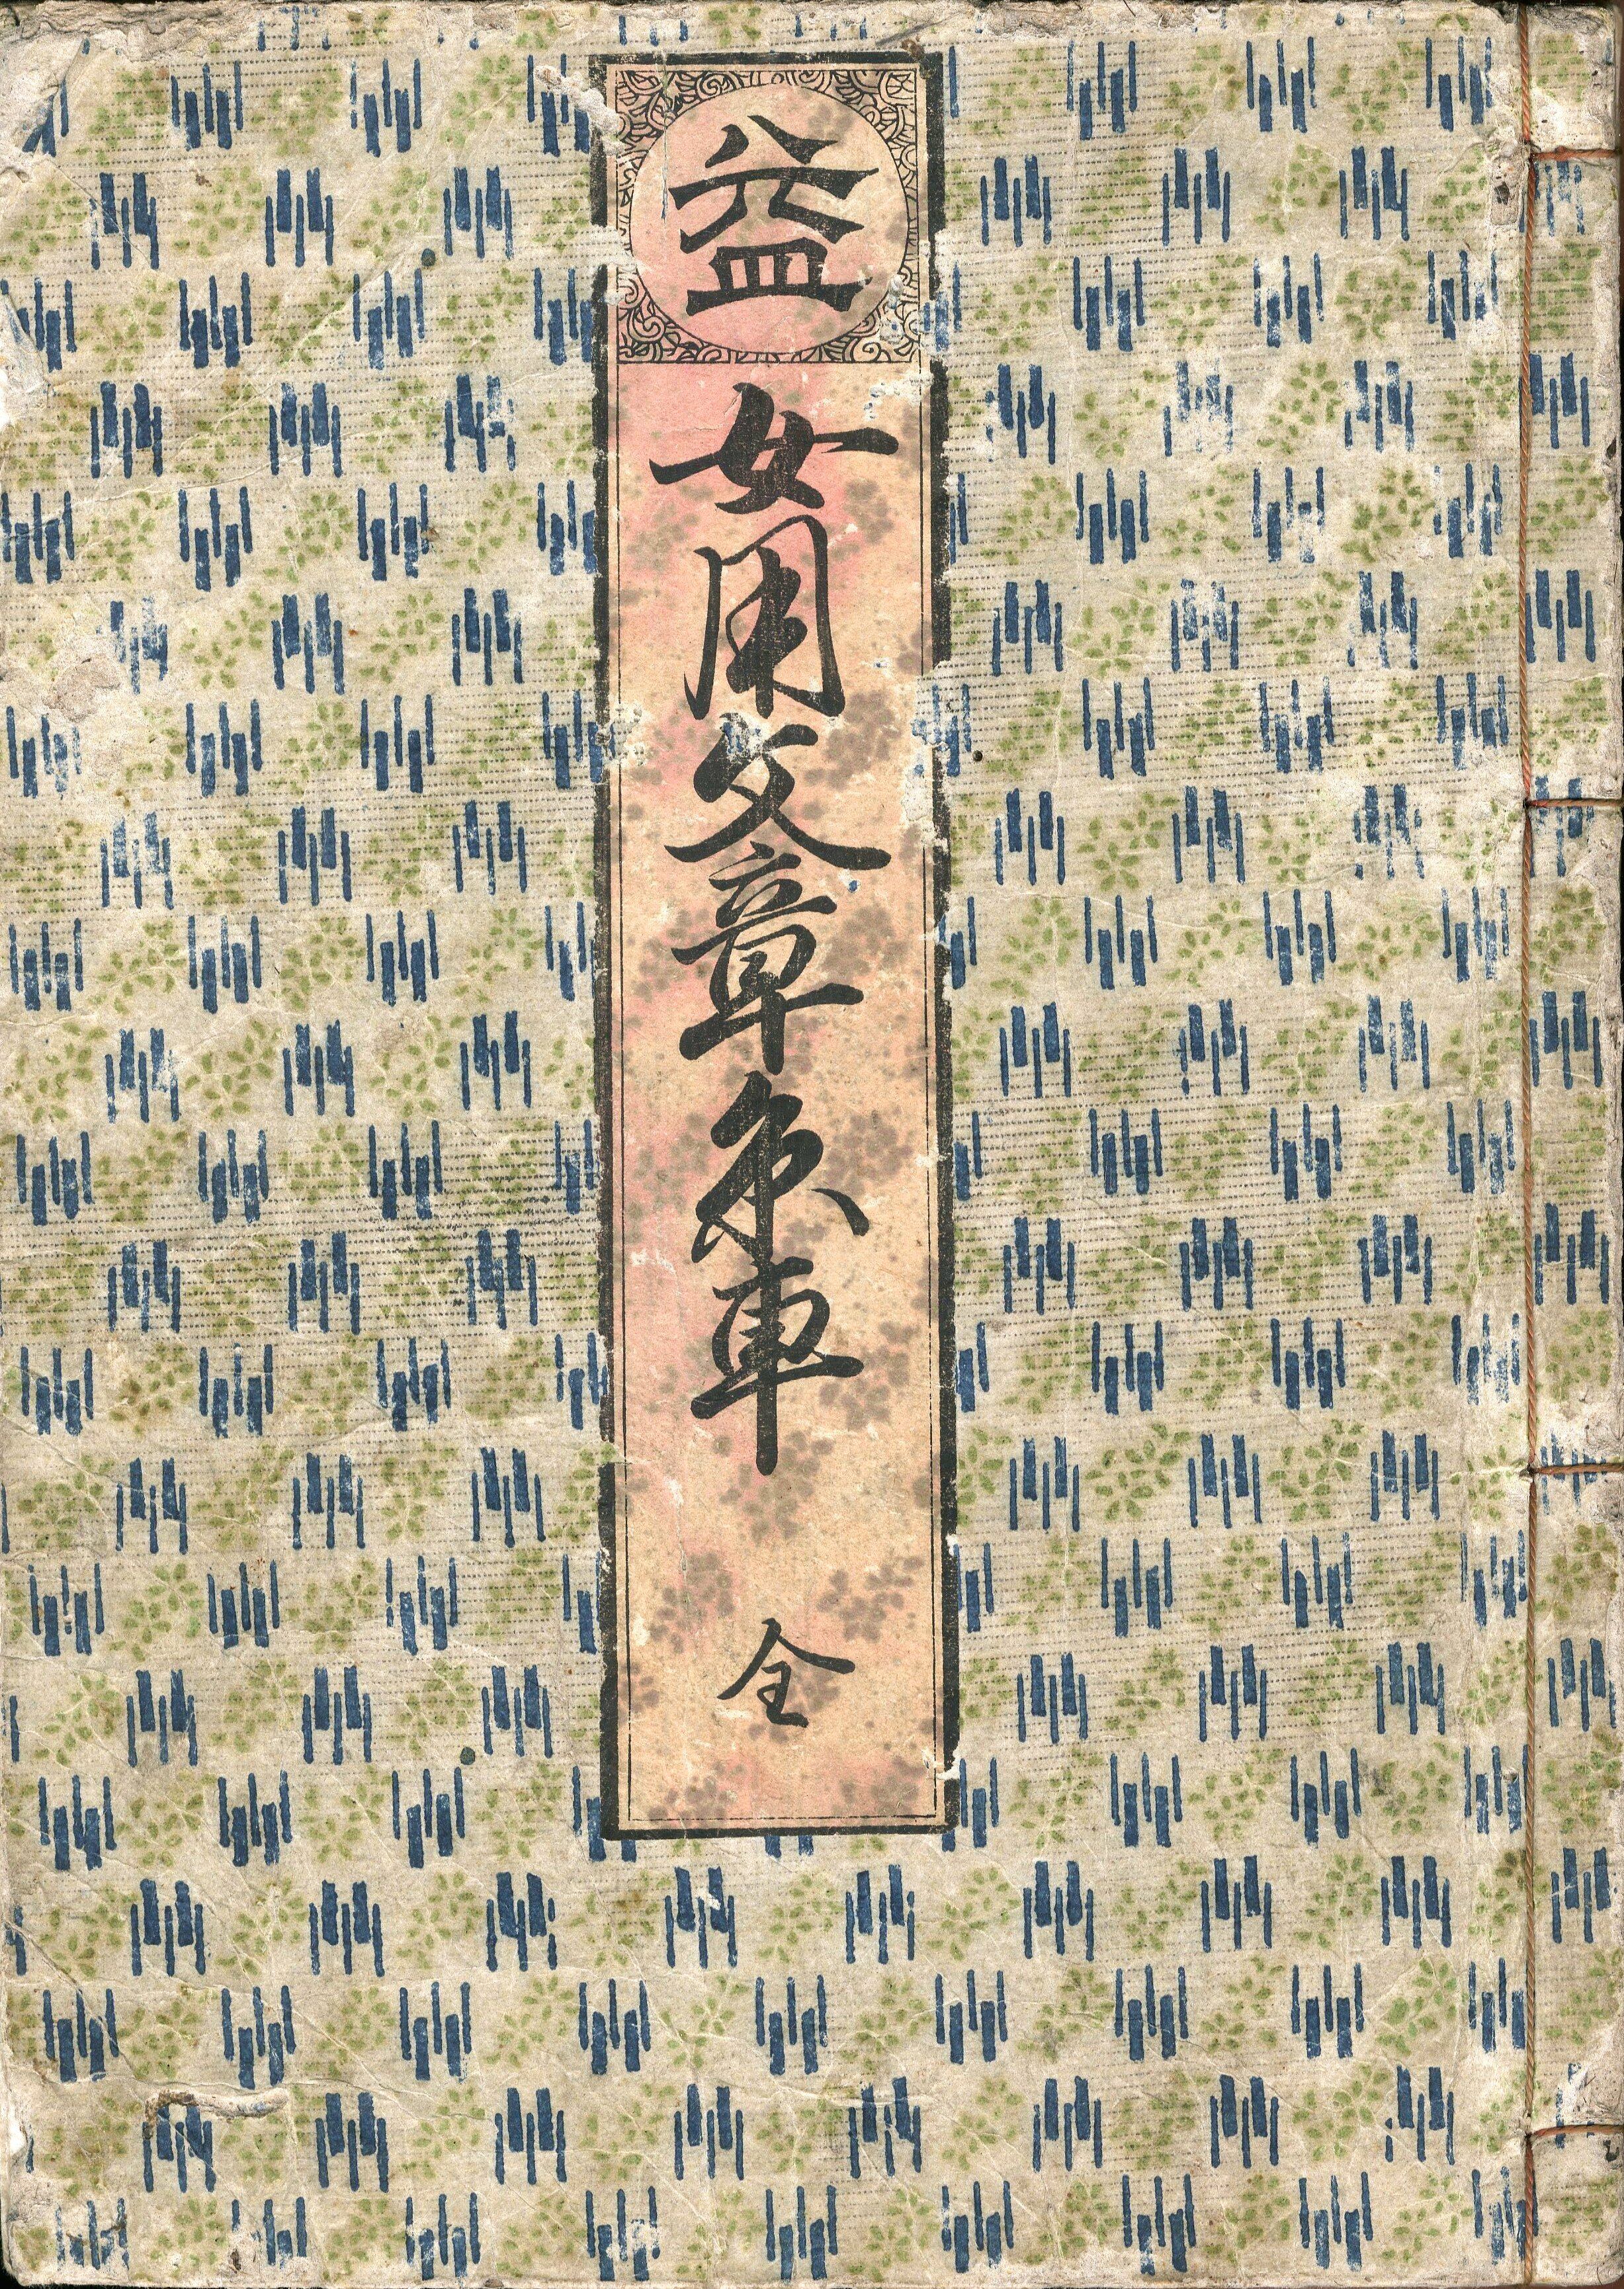 益
女用文章糸車
全